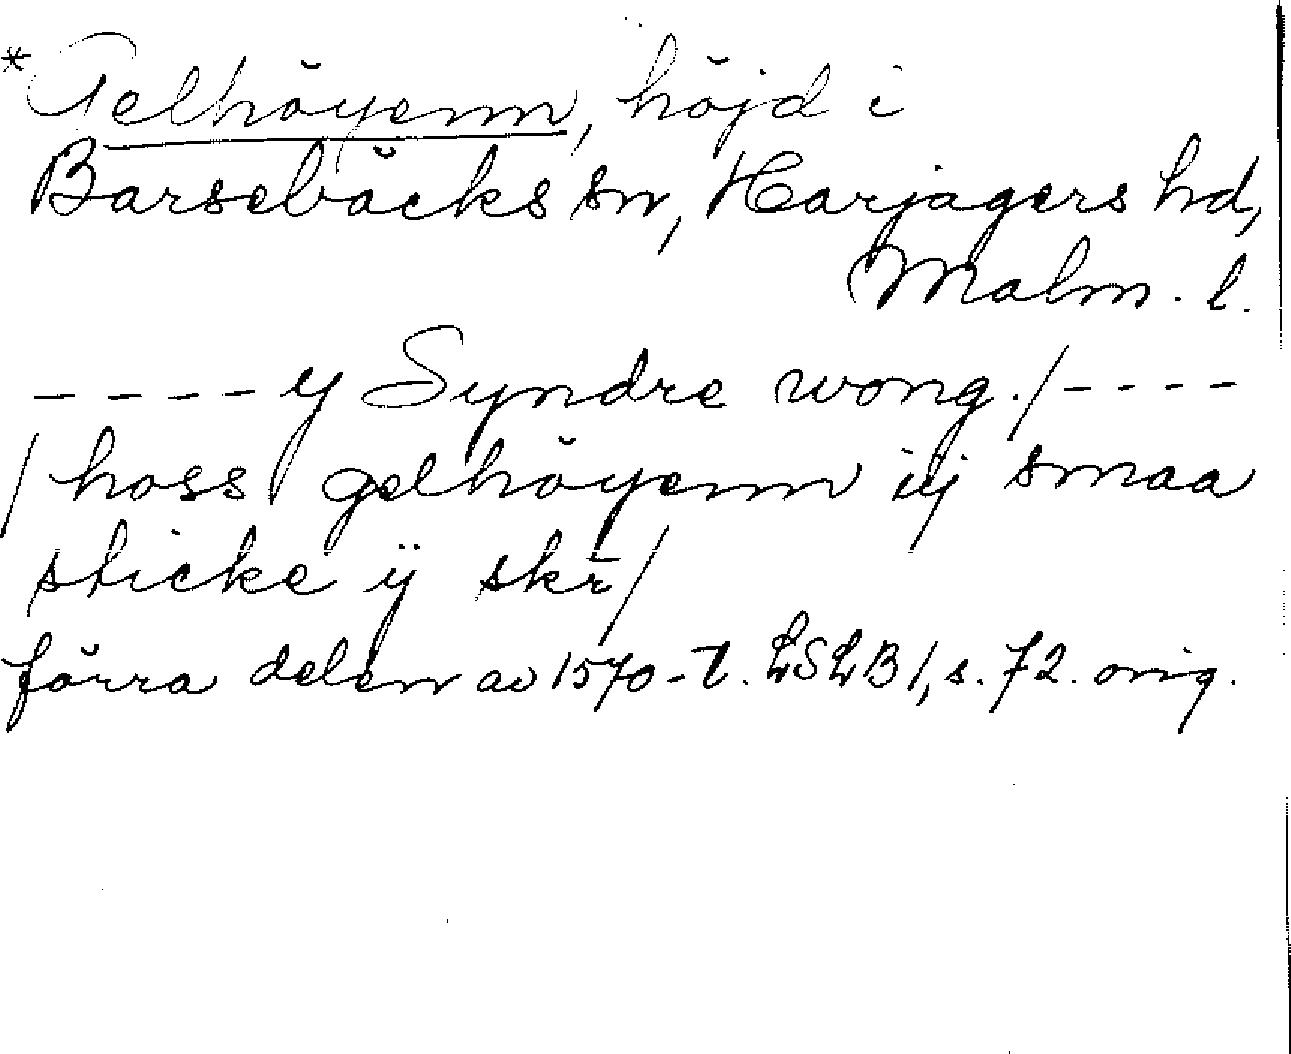 *Gelhöyenn, höjd i
Barsebäcks sn, Harjagers hd,
Malm. l.
---- y Syndre wong./----
/ hoss gelhöyenn iij smaa
sticke ÿ skr/
förra delen av 1570-t. LSLB 1, s. 72. orig.